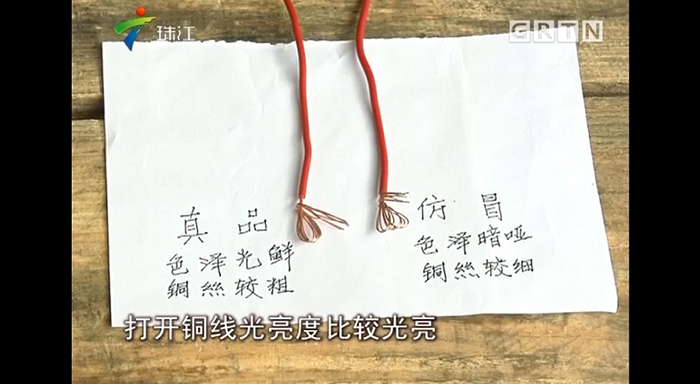 珠江
GRTN
真品
色泽光鲜
铜丝较粗
仿冒
色泽暗哑
铜丝较细
打开铜线光亮度比较光亮